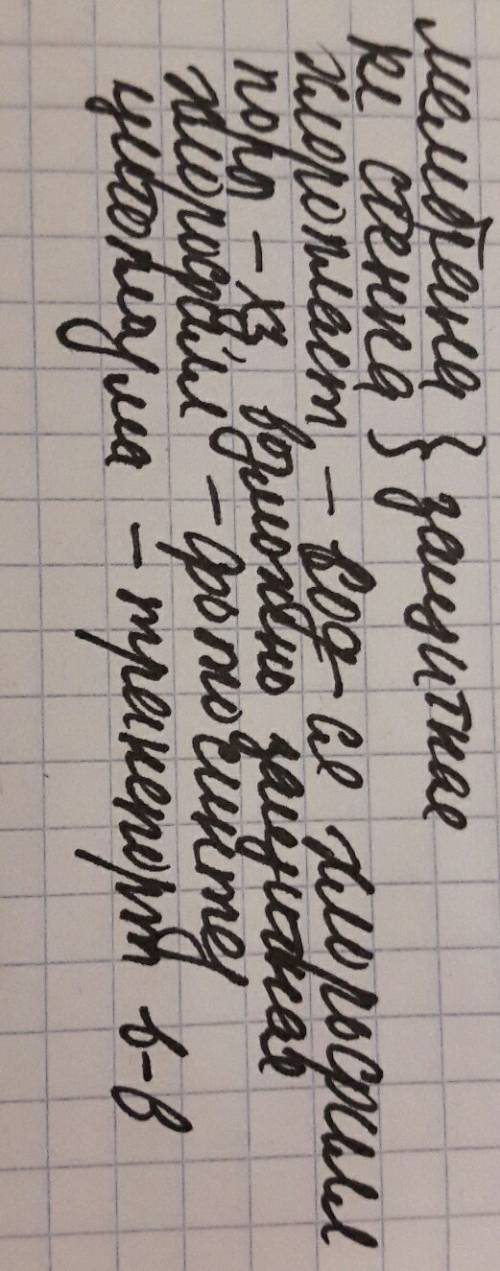 мембрана } защитная
кл стенка
хлоропласт - вод-ся хлорофилл
пора - хз возможно защитная
хлорофилл - фотосинтез
цитоплазма - транспорт в-в